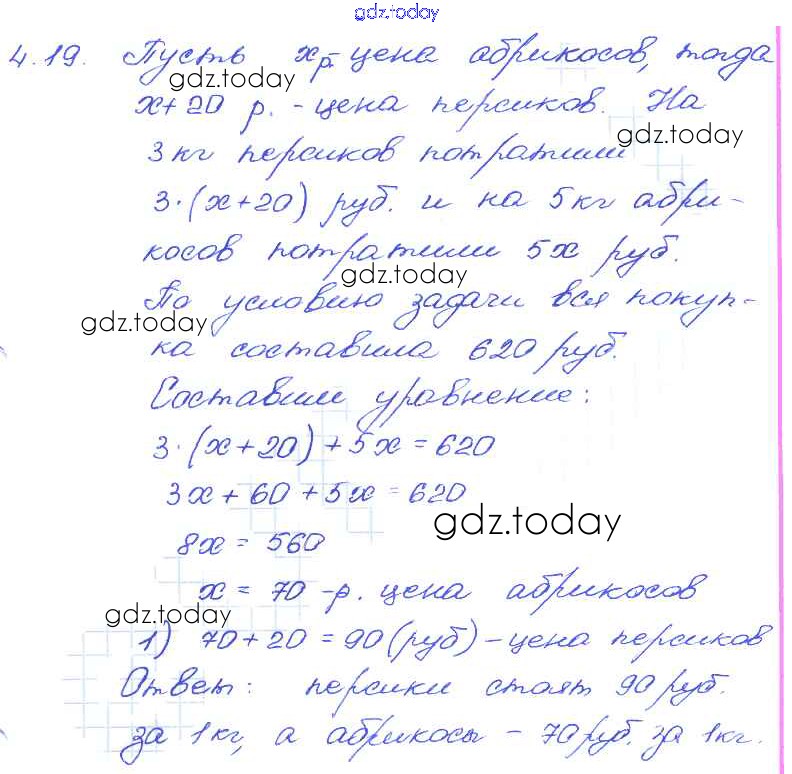 gdz.today
4.19. Пусть x р. - цена абрикосов, тогда
gdz.today
x+20 р. - цена персиков. На
gdz.today
3 кг персиков потратили
3·(x+20) руб. и на 5 кг абри-
косов потратили 5x руб.
gdz.today
По условию задачи вся покуп-
gdz.today
ка составила 620 руб.
Составим уравнение:
3·(x+20)+5x=620
3x+60+5x=620
gdz.today
8x=560
x=70 -р. цена абрикосов
gdz.today
1) 70+20=90(руб)-цена персиков
Ответ: персики стоят 90 руб.
за 1кг, а абрикосы - 70 руб. за 1кг.